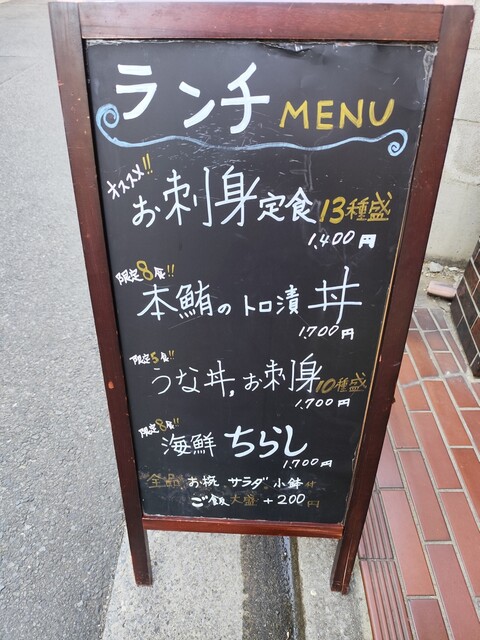 ランチ MENU
オススメ!!
お刺身定食 13種盛
1,400円
限定8食!!
本鮪のトロ漬丼
1,700円
限定5食!!
うな丼,お刺身10種盛
1,700円
限定8食!!
海鮮ちらし
1,700円
全品 お椀 サラダ 小鉢付
ご飯大盛 +200円